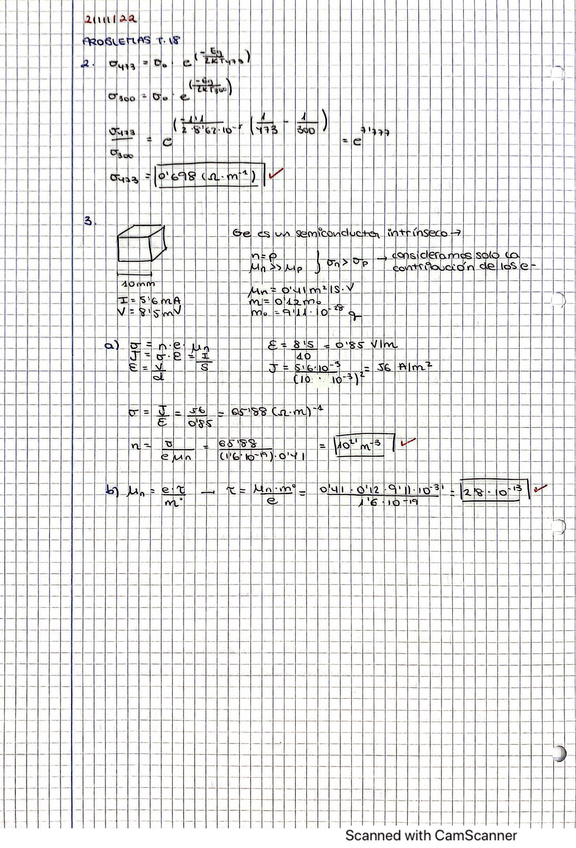 21/11/22
PROBLEMAS T.18
2. σ473 = σ0 · e^(-Eg/2KT473)
σ300 = σ0 · e^(-Eg/2KT300)
σ473/σ300 = e^(-1'1/2·8'62·10^-5 (1/473 - 1/300)) = e^7'777
σ473 = 0'698 (Ω·m^-1) ✓
3.
Ge es un semiconductor intrínseco →
n = p
μn >> μp } σn > σp → consideramos solo la contribución de los e-
10mm
I = 5'6 mA
V = 8'5 mV
μn = 0'41 m²/S·V
m = 0'12 m0
m0 = 9'11·10^-28 g
a) σ = n·e·μn
J = σ·E = I/S
E = V/d
E = 8'5/10 = 0'85 V/m
J = 5'6·10^-3/(10 · 10^-3)² = 56 A/m²
σ = J/E = 56/0'85 = 65'88 (Ω·m)^-1
n = σ/e μn = 65'88/(1'6·10^-19)·0'41 = 10^21 m^-3 ✓
b) μn = e·τ/m* → τ = μn·m*/e = 0'41·0'12·9'11·10^-31/1'6·10^-19 = 2'8·10^-13 ✓
Scanned with CamScanner